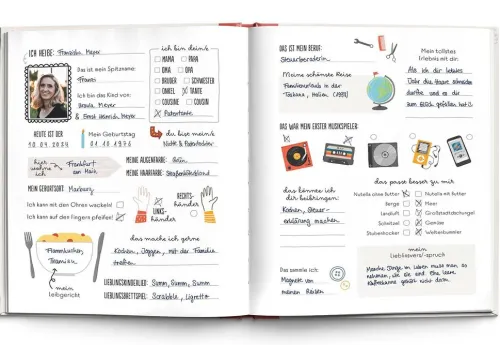 ich heiße: Franziska Meyer
Das ist mein Spitzname:
Franzi
Ich bin das Kind von:
Ursula Meyer
& Ernst Heinrich Meyer
ich bin dein/e
MAMA PAPA
OMA OPA
BRUDER SCHWESTER
ONKEL TANTE
COUSINE COUSIN
Patentante
HEUTE IST DER
10.09.2024
Mein Geburtstag
01.10.1976
du bist mein/e
Nichte & Patentochter
hier wohne ich
Frankfurt
am Main
MEINE AUGENFARBE: Grün
MEINE HAARFARBE: Straßenköterblond
MEIN GEBURTSORT: Marburg
Ich kann mit den Ohren wackeln!
Ich kann auf den Fingern pfeifen!
RECHTS-
händer
LINKS-
händer
das mache ich gerne
Kochen, Joggen, mit der Familie
treffen
Flammkuchen,
Tiramisu
mein
Leibgericht
LIEBLINGSKINDERLIED: Summ, Summ, Summ
LIEBLINGSBRETTSPIEL: Scrabble, Ligretto
DAS IST MEIN BERUF:
Steuerberaterin
Meine schönste Reise
Familienurlaub in der
Toskana, Italien (1987)
Mein tollstes
Erlebnis mit dir:
Als ich dir letztes
Jahr die Haare
durfte und es dir
zum Glück gefallen hat :)
DAS WAR MEIN ERSTER MUSIKSPIELER:
das könnte ich
dir beibringen:
Kochen, Steuer-
erklärung machen
das passt besser zu mir
Nutella ohne Butter Nutella mit Butter
Berge Meer
Landluft Großstadtdschungel
Schnitzel Gemüse
Stubenhocker Weltenbummler
Das sammle ich:
Magnete von
meinen Reisen
mein
Lieblingsvers/-spruch
Manche Dinge im Leben muss man so
nehmen, wie sie sind. Eine leere
Kaffeekanne gehört nicht dazu.